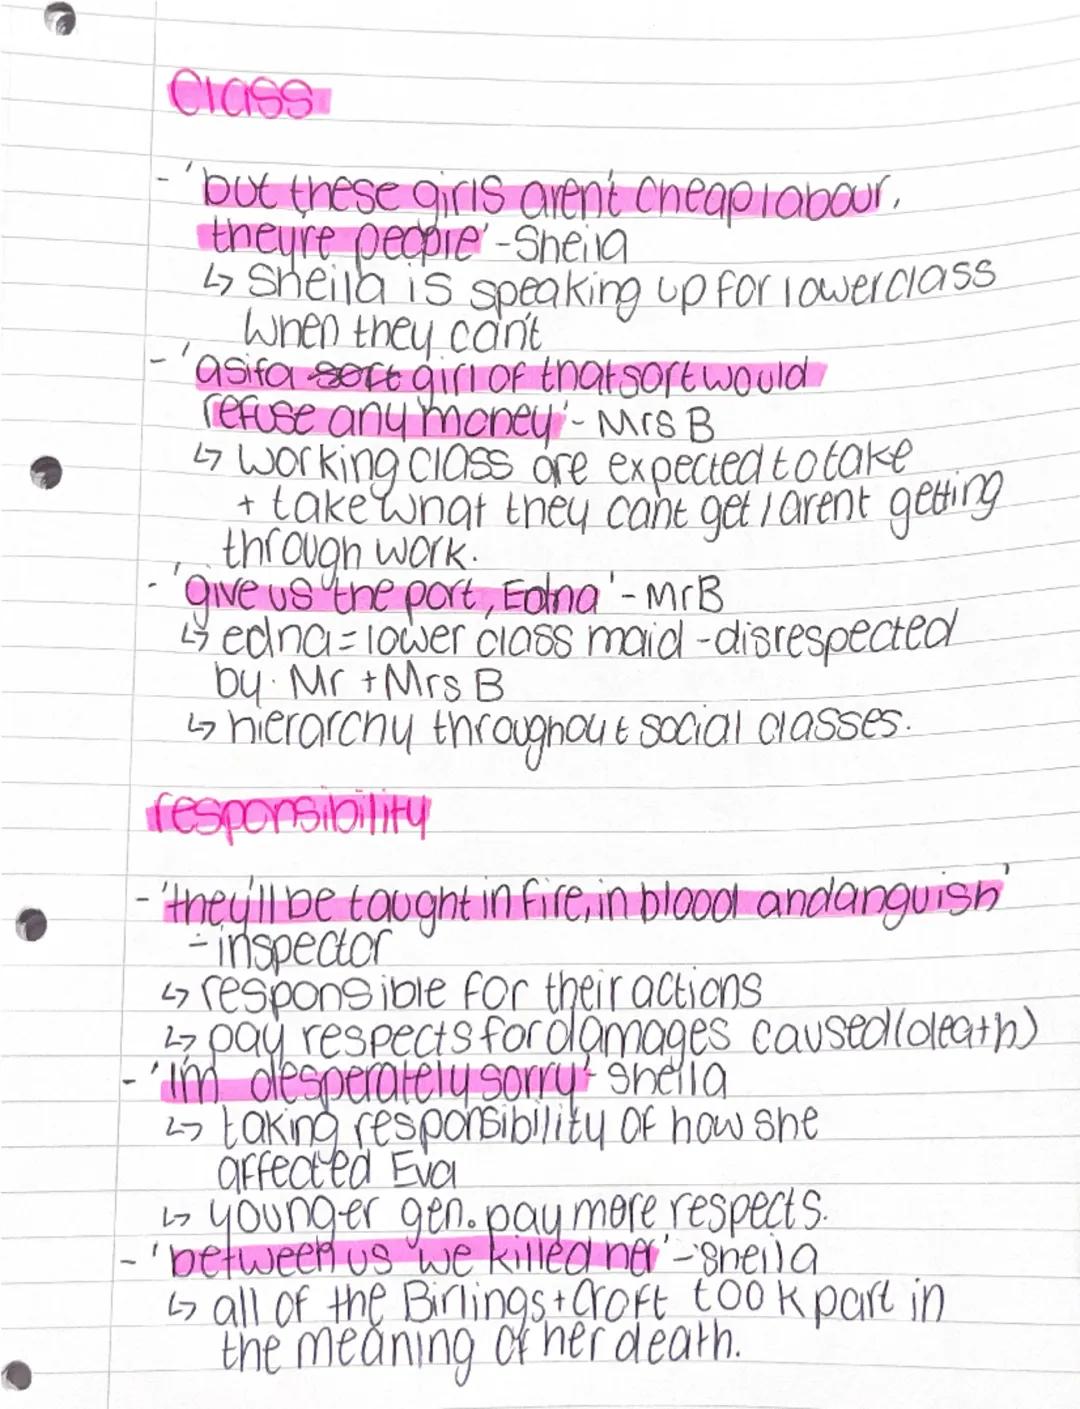 Class
- 'but these girls aren't cheap labour,
they're people' - Sheila
↳ Sheila is speaking up for lower class
when they can't
- 'as if a sort girl of that sort would
refuse any money' - Mrs B
↳ working class are expected to take
+ take what they cant get / arent getting
through work.
- 'give us the port, Edna' - Mr B
↳ edna = lower class maid - disrespected
by Mr + Mrs B
↳ hierarchy throughout social classes.
responsibility
- 'they'll be taught in fire, in blood and anguish'
- inspector
↳ responsible for their actions
↳ pay respects for damages caused (death)
- 'I'm desperately sorry' - Sheila
↳ taking responsibility of how she
affected Eva
↳ younger gen. pay more respects.
- 'between us we killed her' - Sheila
↳ all of the Birlings + Croft took part in
the meaning of her death.